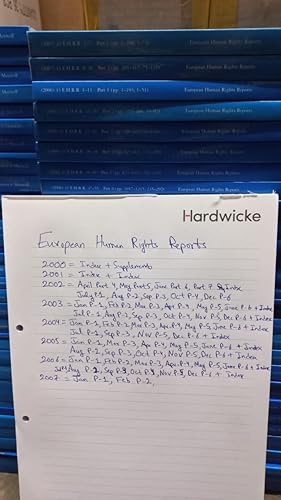 Maxwell
European Human Rights Reports
Maxwell
European Human Rights Reports
Maxwell
(2006) 1 E.H.R.R. 1–11 Part 1 (pp. 1–295, 1–51) European Human Rights Reports
European Human Rights Reports
European Human Rights Reports
European Human Rights Reports
European Human Rights Reports
European Human Rights Reports
Hardwicke
European Human Rights Reports
2000 = Index + Supplements
2001 = Index + Index
2002 = April Part 4, May Part 5, June Part 6, Part 7 Index
July P-1, Aug P-2, Sep P-3, Oct P-4, Dec P-6
2003 = Jan P-1, Feb P-2, Mar P-3, Apr P-4, May P-5, June P-6 + Index
Jul P-1, Aug P-2, Sep P-3, Oct P-4, Nov P-5, Dec P-6 + Index
2004 = Jan P-1, Feb P-2, Mar P-3, Apr P-4, May P-5, June P-6 + Index
Jul P-1, Sep P-3, Nov P-5, Dec P-6 + Index
2005 = Jan P-1, Mar P-3, Apr P-4, May P-5, June P-6 + Index
Aug P-2, Sep P-3, Oct P-4, Nov P-5, Dec P-6 + Index
2006 = Jan P-1, Feb P-2, Mar P-3, Apr P-4, May P-5, June P-6 + Index
Jul Aug P-2, Sep P-3, Oct P-4, Nov P-5, Dec P-6 + Index
2007 = Jan P-1, Feb P-2,